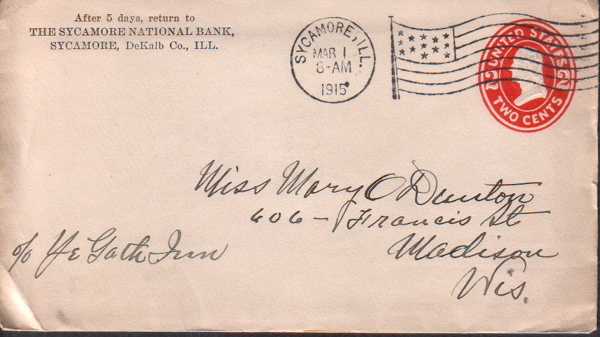 After 5 days, return to
THE SYCAMORE NATIONAL BANK,
SYCAMORE, DeKalb Co., ILL.
SYCAMORE, ILL.
MAR 1
8-AM
1915
UNITED STATES
2 2
TWO CENTS
Miss Mary O Dunton
606 - Francis St
Madison
Wis.
c/o Ye Gath Inn